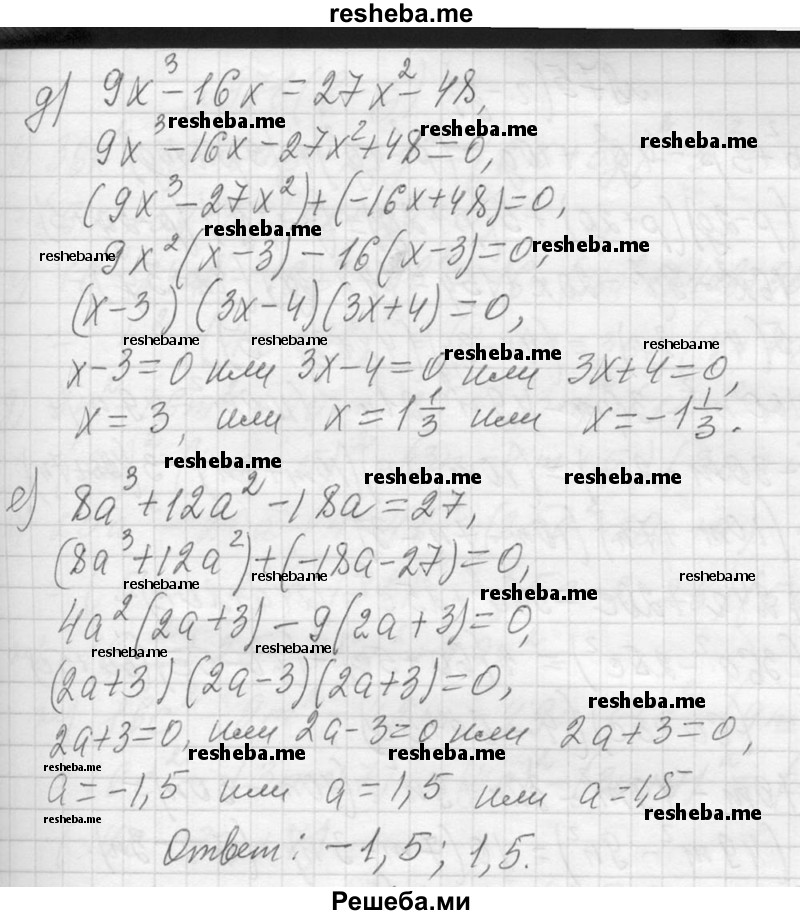 resheba.me
д) 9x³ - 16x = 27x² - 48,
resheba.me resheba.me resheba.me
9x³ - 16x - 27x² + 48 = 0,
(9x³ - 27x²) + (-16x + 48) = 0,
resheba.me resheba.me resheba.me
9x² (x - 3) - 16 (x - 3) = 0,
(x - 3) (3x - 4) (3x + 4) = 0,
resheba.me resheba.me resheba.me resheba.me
x - 3 = 0 или 3x - 4 = 0 или 3x + 4 = 0,
x = 3, или x = 1 1/3 или x = -1 1/3.
resheba.me resheba.me resheba.me
е) 8a³ + 12a² - 18a = 27,
(8a³ + 12a²) + (-18a - 27) = 0,
resheba.me resheba.me resheba.me resheba.me
4a² (2a + 3) - 9 (2a + 3) = 0,
resheba.me resheba.me
(2a + 3) (2a - 3) (2a + 3) = 0,
resheba.me
2a + 3 = 0, или 2a - 3 = 0 или 2a + 3 = 0,
resheba.me resheba.me resheba.me
a = -1,5 или a = 1,5 или a = 1,5
resheba.me resheba.me
Ответ: -1,5; 1,5.
Решеба.ми